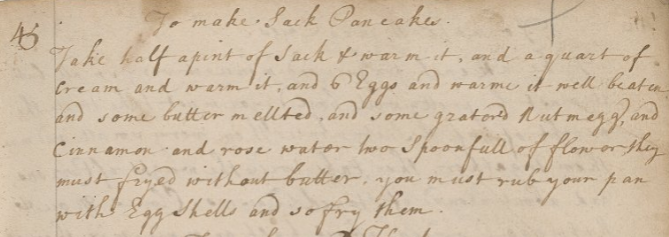 45
To make Sack Pancakes.
Take half a pint of Sack & warm it, and a quart of
Cream and warm it, and 6 Eggs and warme it well beaten
and some butter mellted, and some grated Nutmegg, and
Cinnamon and rose water two Spoonfull of flower they
must fryed without butter, you must rub your pan
with Egg Shells and so fry them.